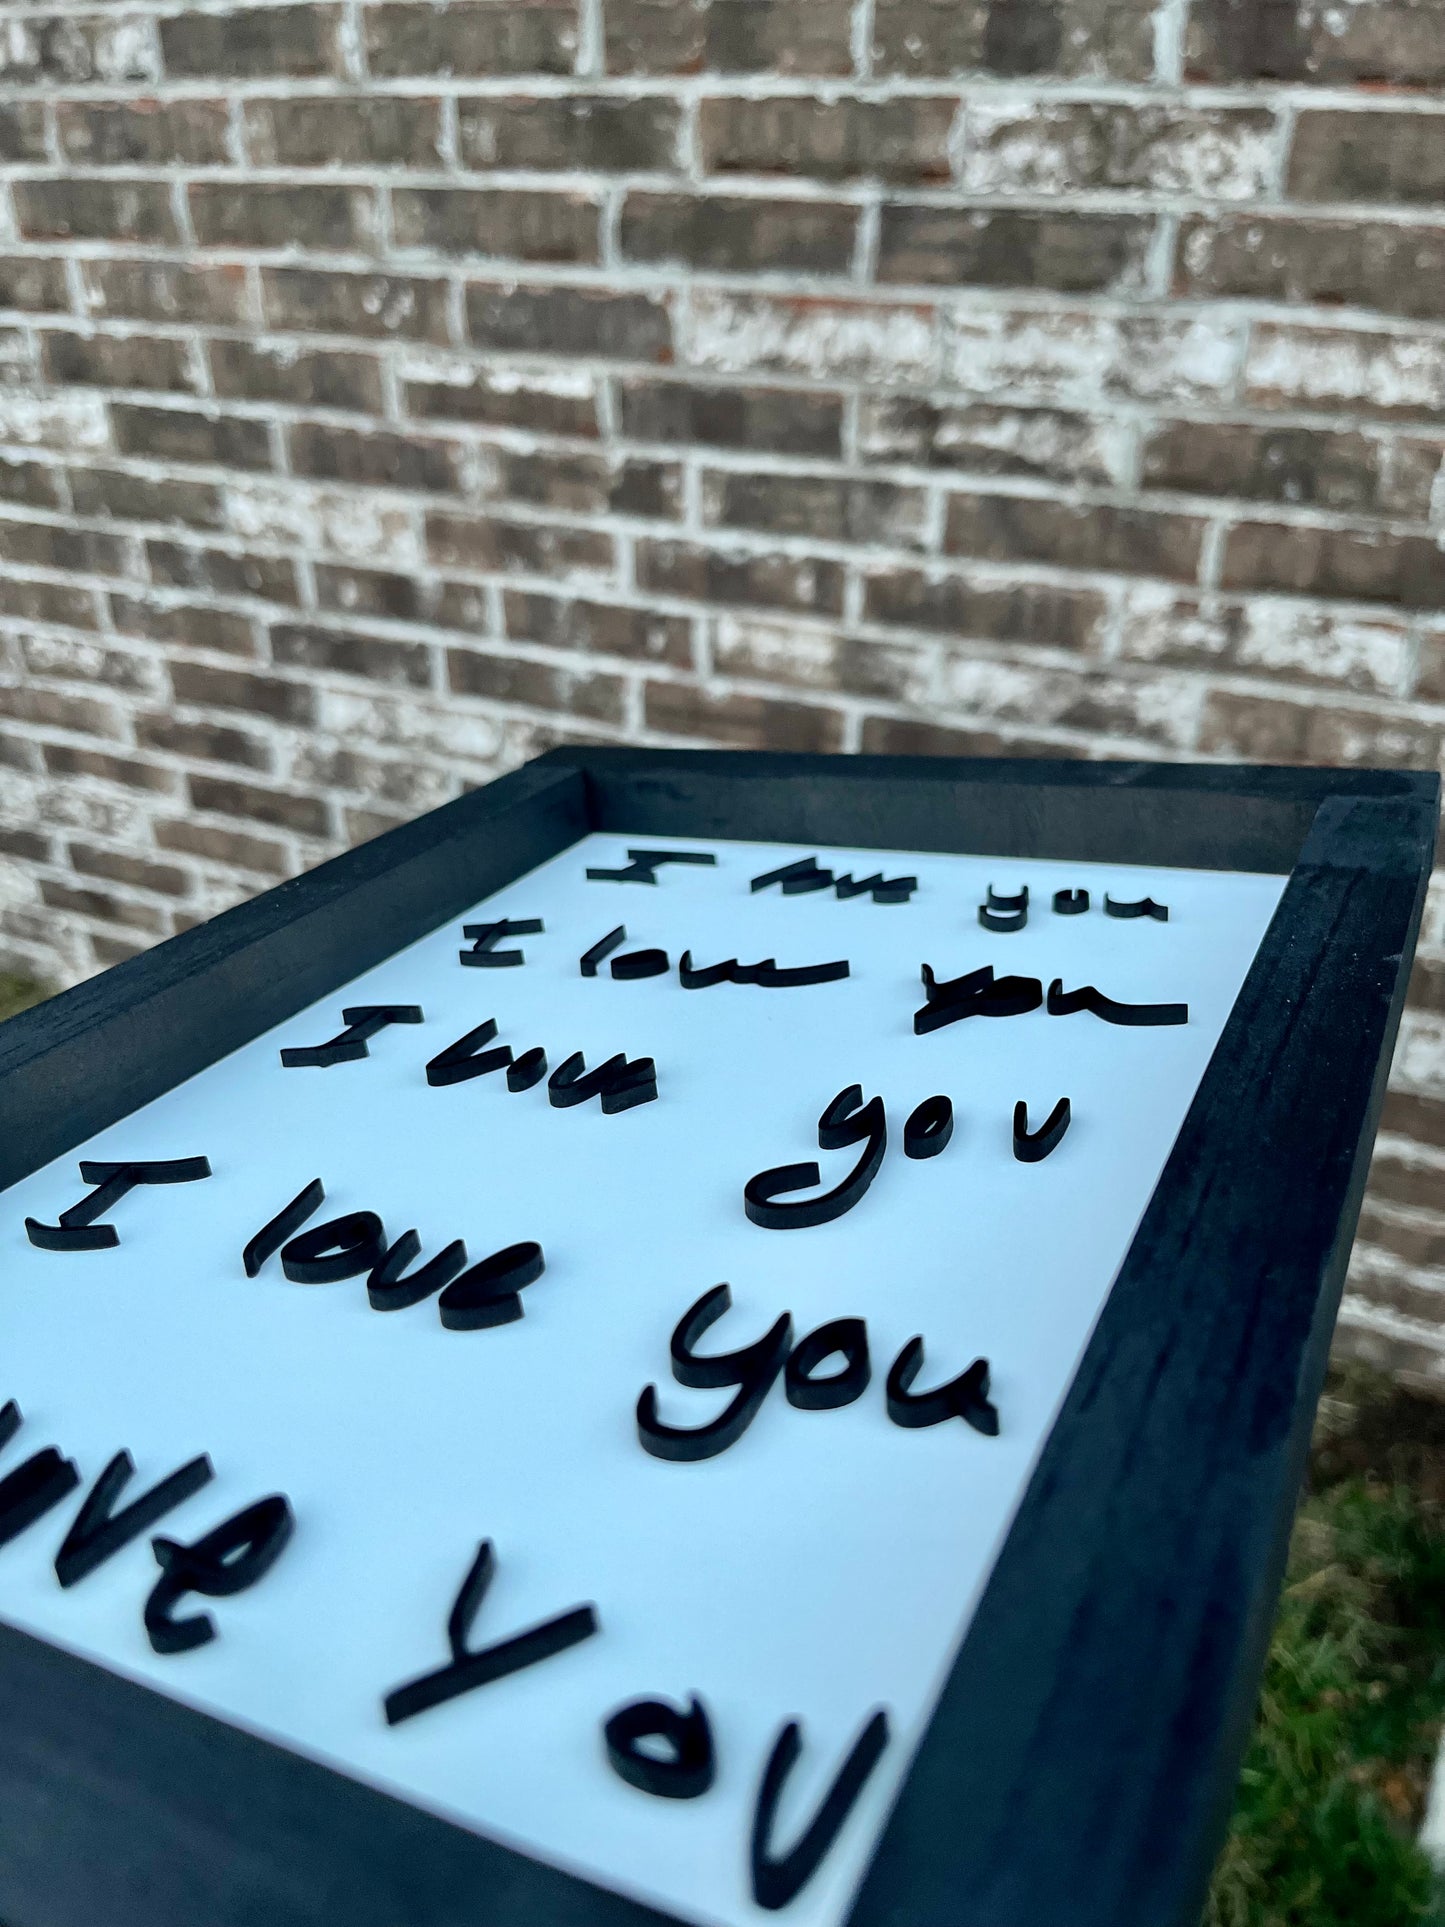 I love you
I love you
I love you
I love you
love you